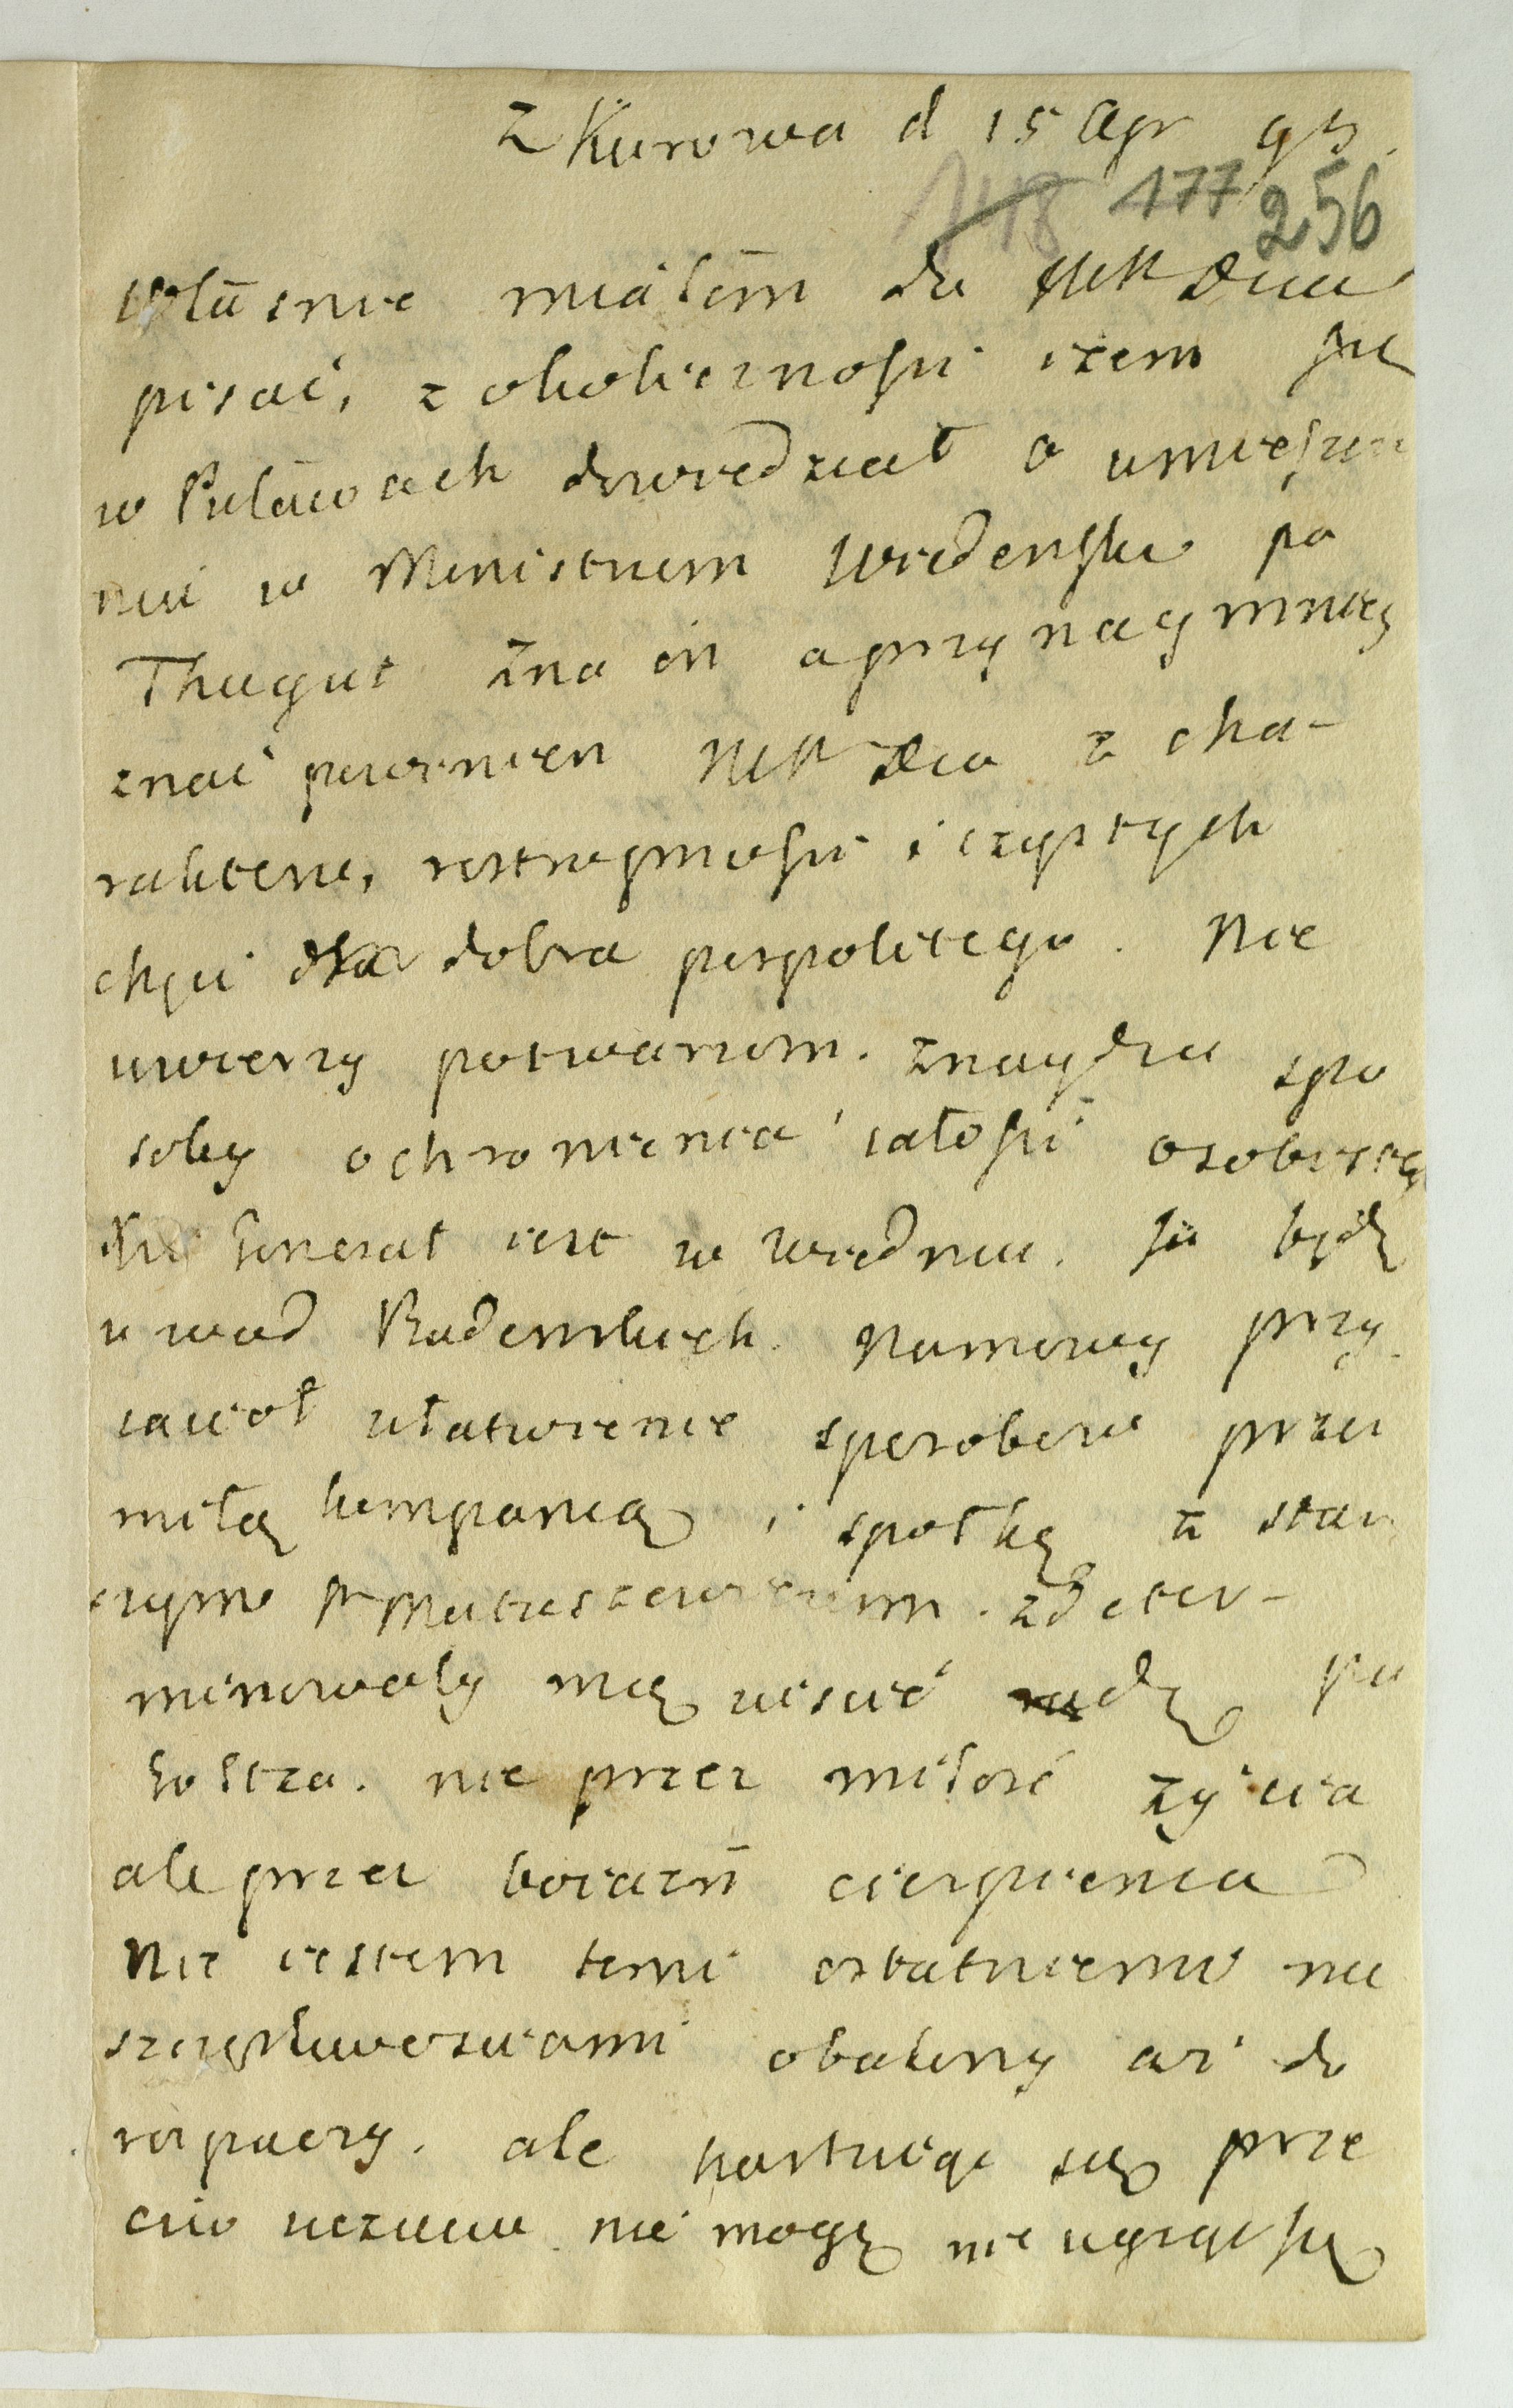 z Kurowa d 15 Apr 93.
148 177 256
własnie miałem do WM Dcia
pisać, z okolicznosci iżem się
w Puławach dowiedział o umieszcze
niu w Ministrium Wiedenskie pa
Thugut zna on a przynaymniey
znać powinien WM Dcia z cha-
rakteru, roztropnosci i czystych
chęci dla dobra pospolitego. Nie
uwierzy potwarzom. znaydzie spo
soby ochronienia całosci osobistey
Generał iest w Wiedniu. Ja będę
u wod Badenskich. Namowy przy
iacioł ułatwienie sposobow przez
miłą kompanią i społkę z stan
czymo Pm Matuszewiczem. zdeter-
minowały mię uiscić radę pa
Goltza. nie przez miłość życia
ale przez boiaźń cierpienia
Nie iestem temi ostatniemi nie
szczęsliwosciami obalony aż do
rozpaczy. ale hartuiąc się prze
ciw uczuciu nie mogę nie ugiąć się